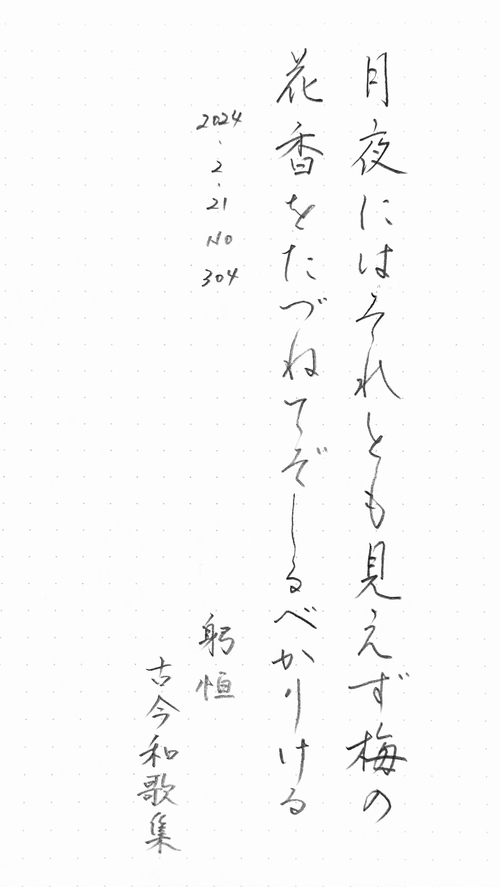 月夜にはそれとも見えず梅の
花香をたづねてぞしるべかりける
2024.2.21 NO 304
躬恒
古今和歌集